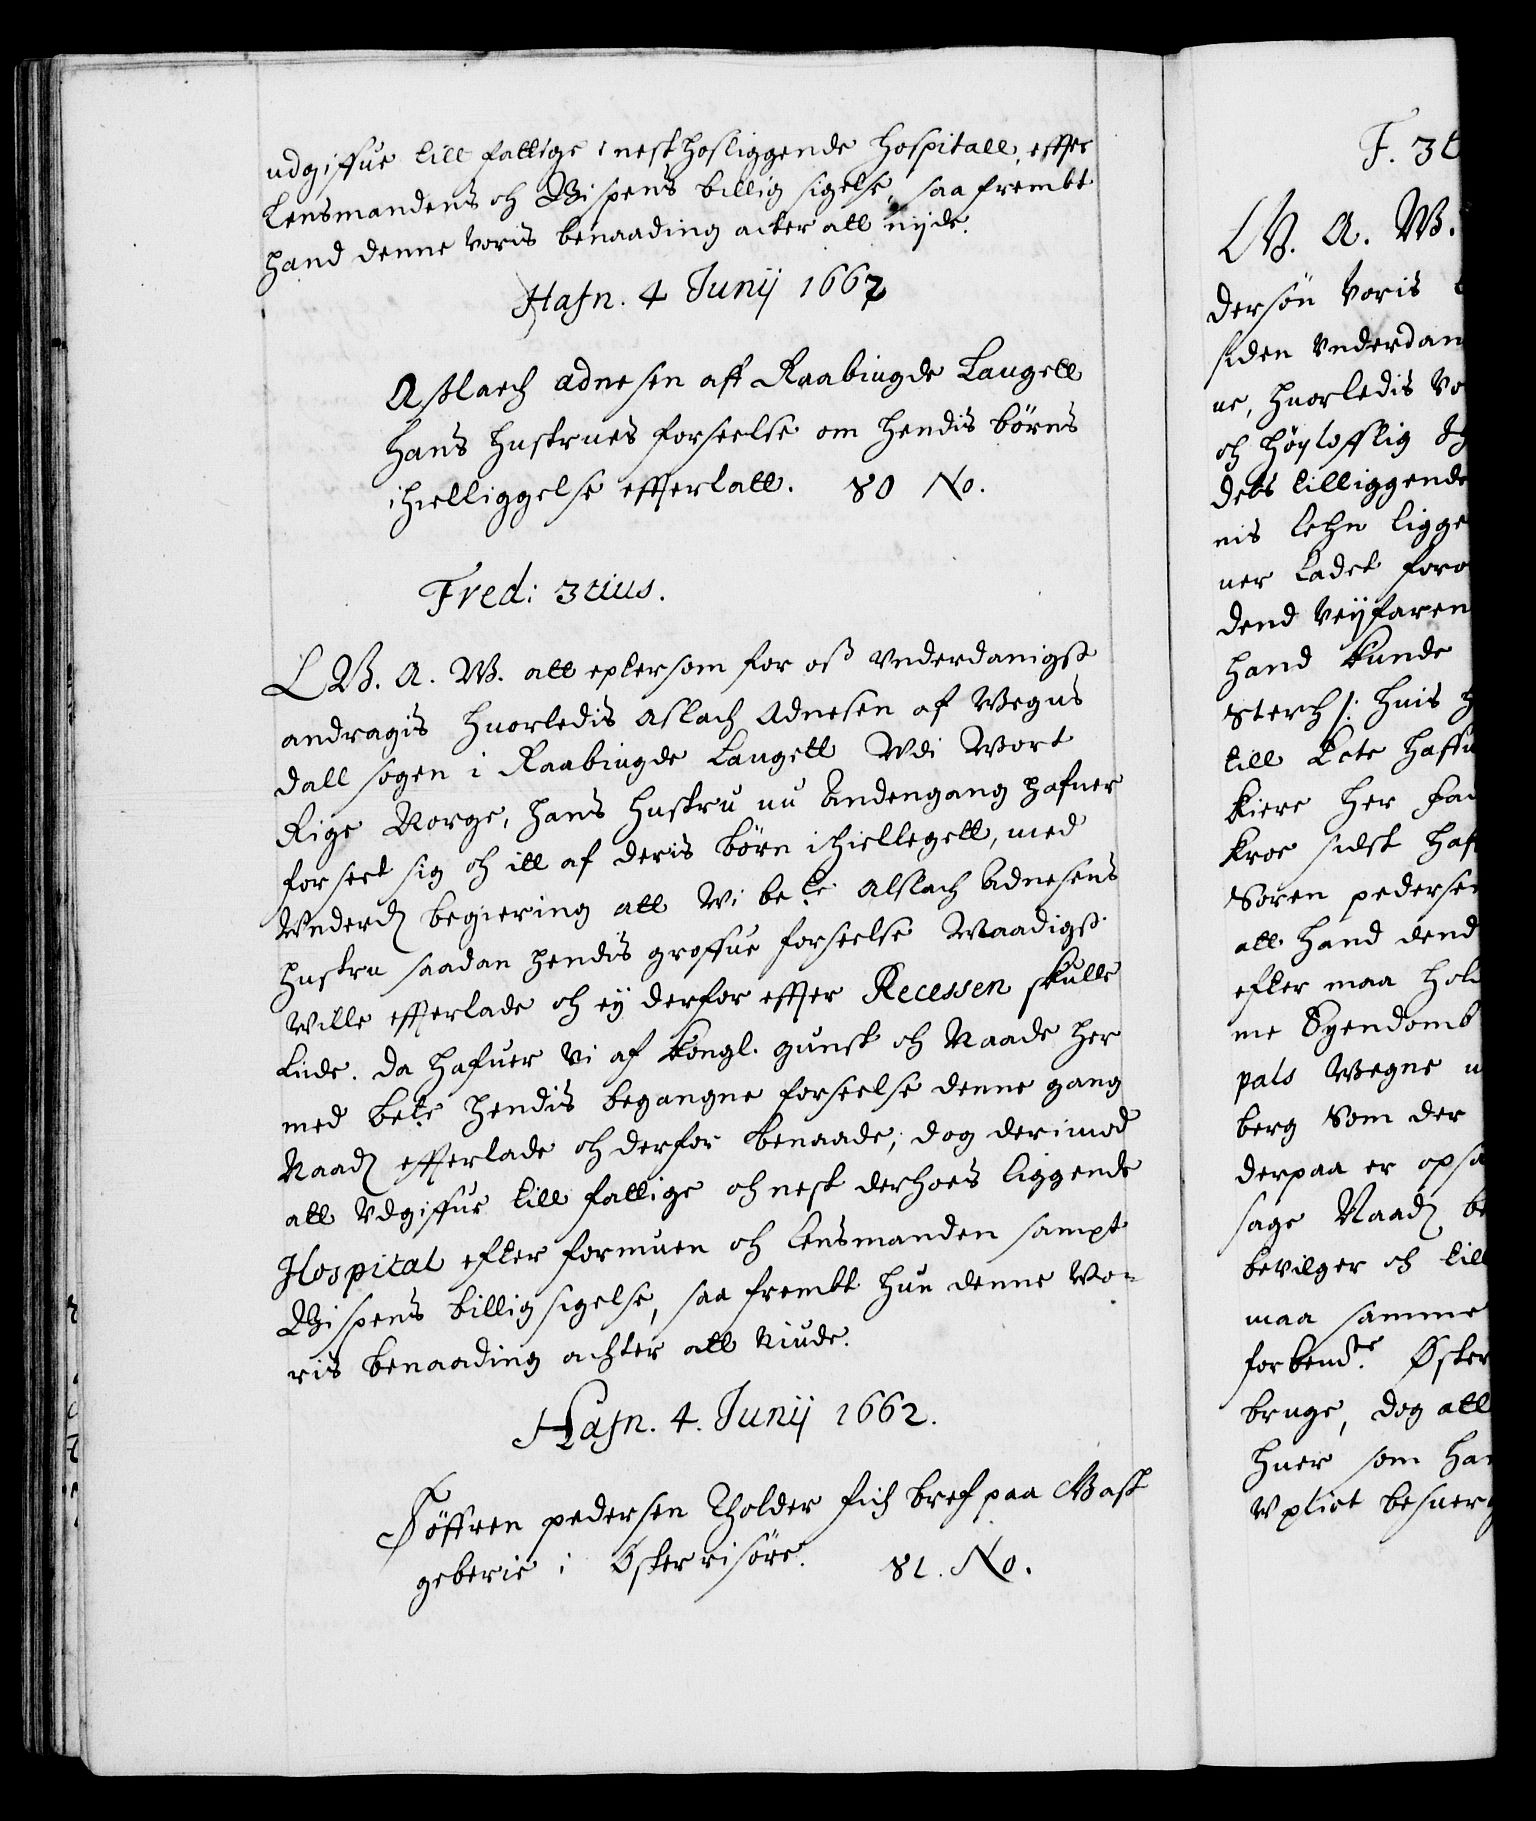 udgiffue till fattige i nest hosliggende Hospitall, effter
Lensmandens och Bispens billig sigelse, saa frembt
hand denne voris benaading acter att nyde.
Hafn. 4 Junij 1662
Asslach Adnesen aff Raabiugde Laugett
Hans Hustrues forseelse om hendis börns
ihielliggelse efterlatt. 80 No.
Fred: 3tius.
L B. A. W. att eptersom for oss vnderdanigst
andragis huorledis Aslach Adnesen af Wegus
dall sogen i Raabiugde Laugett Vdi Wort
Rige Norge, hans hustru nu Andengang hafuer
forseet sig och itt af deris börn ihiellegett, med
Vnderd begiering att Wi bete Alslach Adnesens
hustru saadan hendis groffue forseelse Naadigst
Wille efterlade och ey derfor efter Recessen skulle
liide. da hafuer Vi af kongl. gunst och Naade her
med bete hendis begangne forseelse denne gang
Naad efterlade och derfor benaade, dog derimod
att Vdgiffue till fattige och nest derhoes liggende
Hospital efter formuen och Lensmanden sampt
Bispens billig sigelse, saa frembt hun denne Vo-
ris benaading achter att Niude.
Hafn. 4. Junij 1662.
Söffren pedersen Tholder fich bref paa Gast
geberie i Østerrisöre. 81. No.
F. 3t
L B. A. W.
dersön Voris
siden vnderdan
ne, huorledis Vo
och höyloflig
dets tilliggende
nis lehn ligge
ner ladet foro
dend Veyfaren
hand kunde
Sterch /: huis
till Lete haffu
kiere her fad
kroe sidst haf
Soren pedersen
att hand dend
efter maa hold
me Eyendomb
pals Wegne
berg Som der
derpaa er opsa
sage Naad be
bevilger och till
maa samme
forbendte Øster
bruge, dog att
huer som han
Vplict besuerg